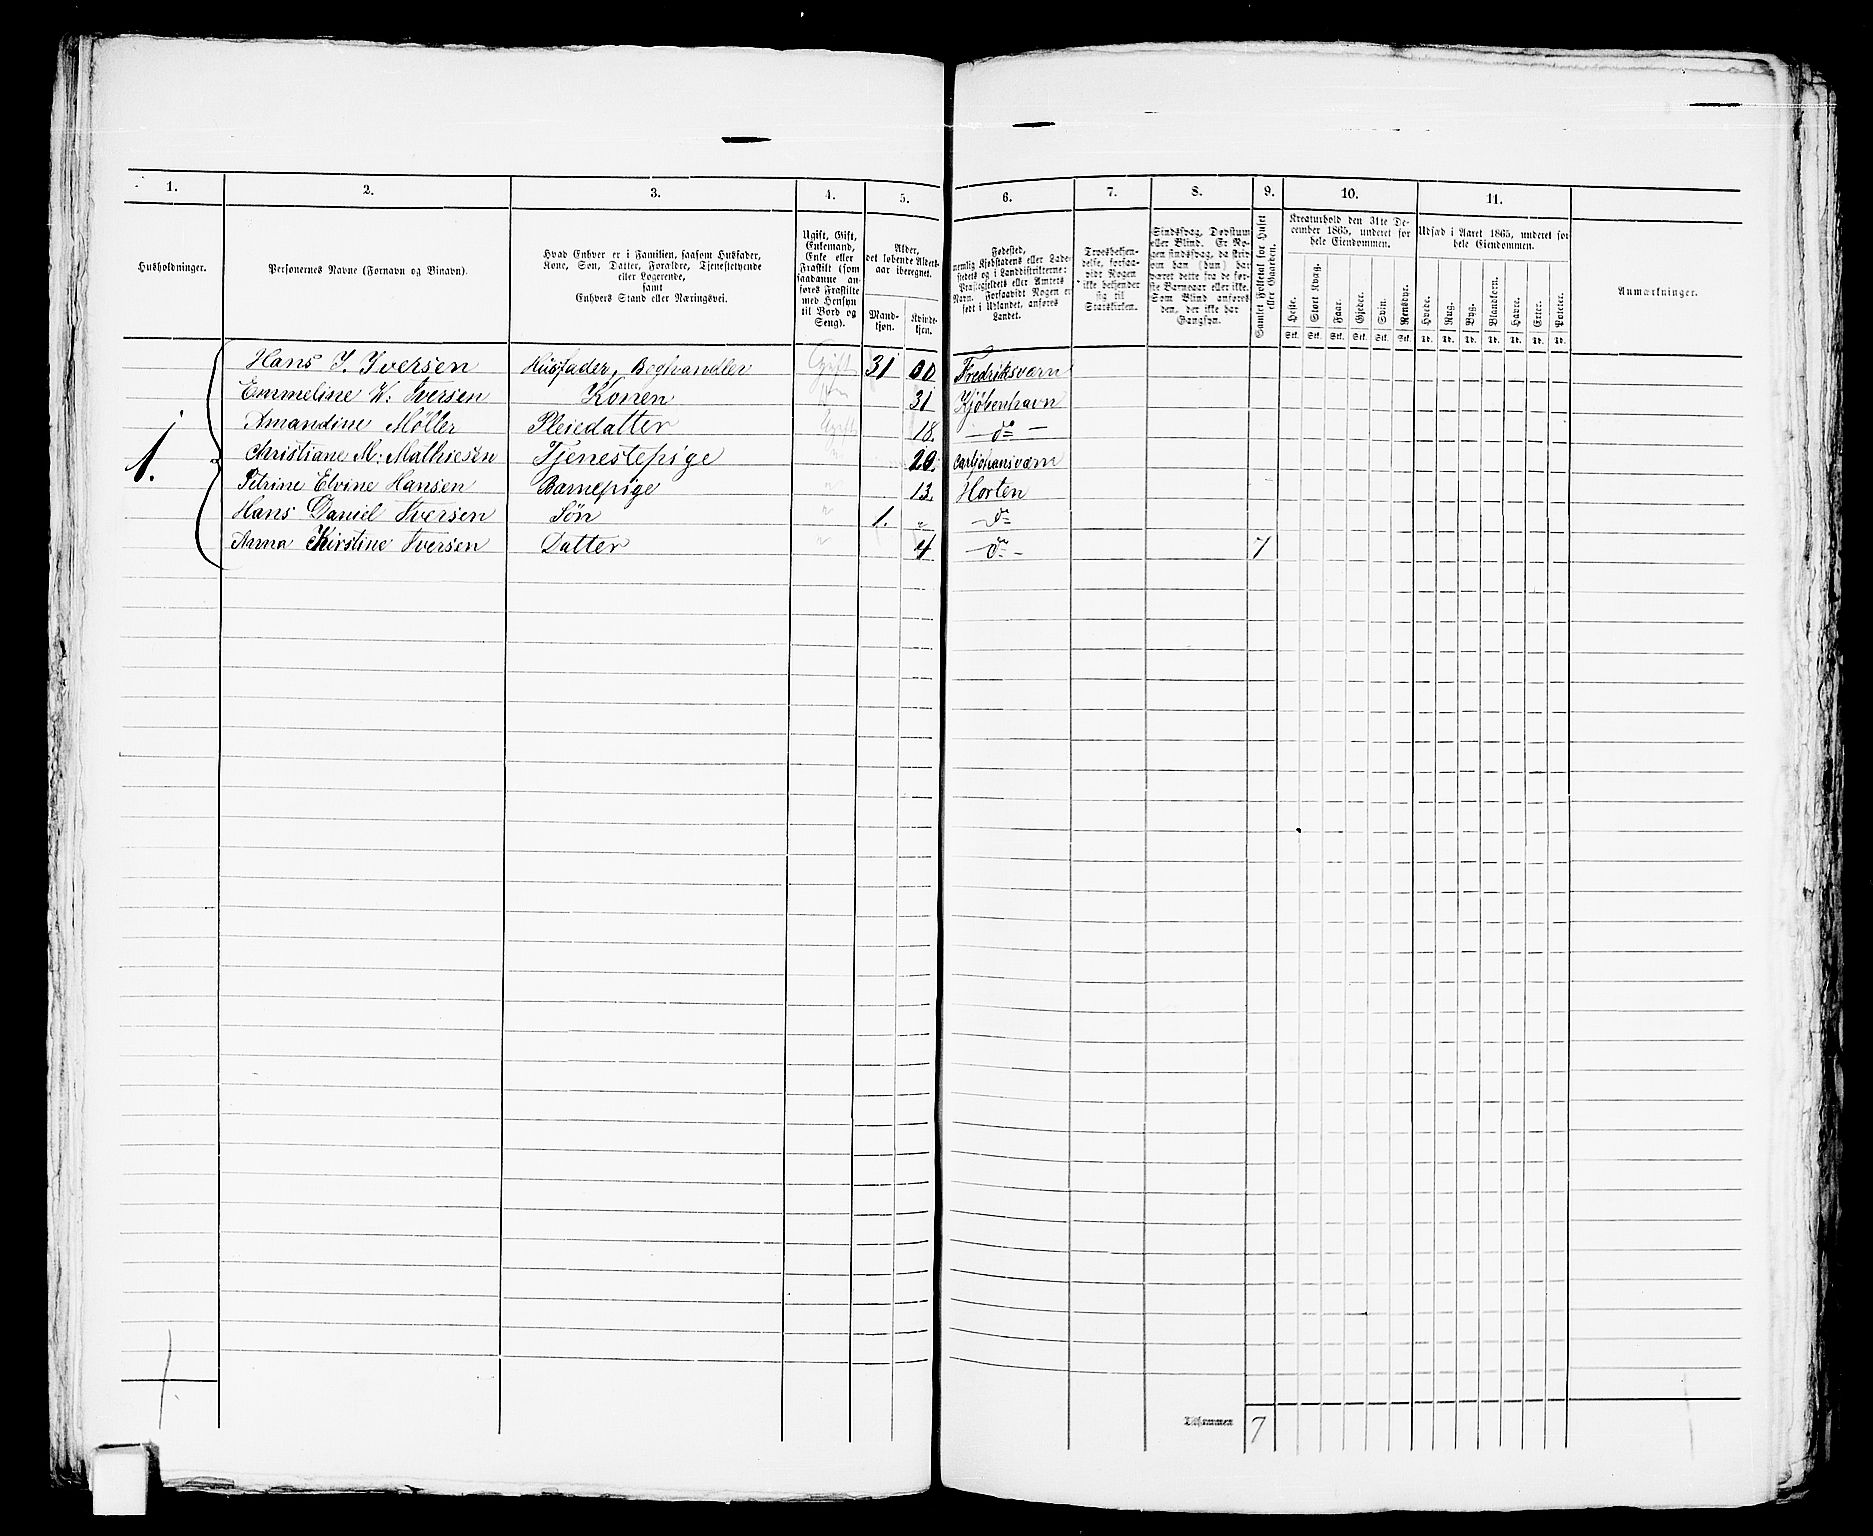 1. 2. 3. 4. 5. 6. 7. 8. 9. 10. 11.
Husholdninger.
Personernes Navne (Fornavn og Binavn).
Hvad Enhver er i Familien, saasom Husfader,
Kone, Søn, Datter, Forældre, Tjenestetyende
eller Logerende,
samt
Enhvers Stand eller Næringsvei.
Ugift, Gift,
Enkemand,
Enke eller
Fraskilt (som
saadanne an-
føres Fraskilte
med Hensyn
til Bord og
Seng).
Alder,
det løbende Alders-
aar iberegnet.
Mand-
kjøn.
Kvinde-
kjøn.
Fødested,
nemlig Kjøbstadens eller Lade-
stedets og i Landdistrikterne:
Præstegjeldets eller Amtets
Navn. Forsaavidt Nogen er
født i Udlandet, anføres
Landet.
Troesbekjen-
delse, forsaa-
vidt Nogen
ikke bekjender
sig til
Statskirken.
Sindssvag, Døvstum
eller Blind. Er No-
gen sindssvag, da skriv
om han (hun) har
været dette fra de før-
ste Barneaar eller ikke.
Som Blind anføres
den, der ikke har
Gangsyn.
Samlet Folketal for Huset
eller Gaarden.
Kreaturhold den 31te De-
cember 1865, underet for
hele Eiendommen.
Heste. Stort Kvæg. Faar. Gjeder. Svin. Rensdyr.
Stk. Stk. Stk. Stk. Stk. Stk.
Udsæd i Aaret 1865, underet for
hele Eiendommen.
Hvede. Rug. Byg. Blandkorn. Havre. Erter. Poteter.
Td. Td. Td. Td. Td. Td. Td.
Anmærkninger.
1.
Hans J. Iversen Husfader, Boghandler Gift 31 Fredriksværn
Emmeline W: Iversen Konen 31 Kjøbenhavn
Amandine Møller Pleiedatter Ugift 18. — do —
Christiane M: Mathiesen Tjenestepige " 20. Carljohansværn
Petrine Elvine Hansen Barnepige " 13. Horten
Hans Daniel Iversen Søn " 1. " — do
Anna Kirstine Iversen Datter " 4 — do — 7
1.
Tilsammen 7